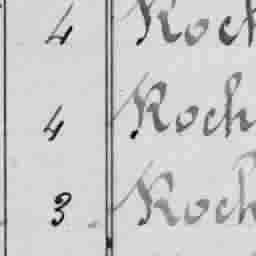 4 Koch
4 Koch
3 Koch